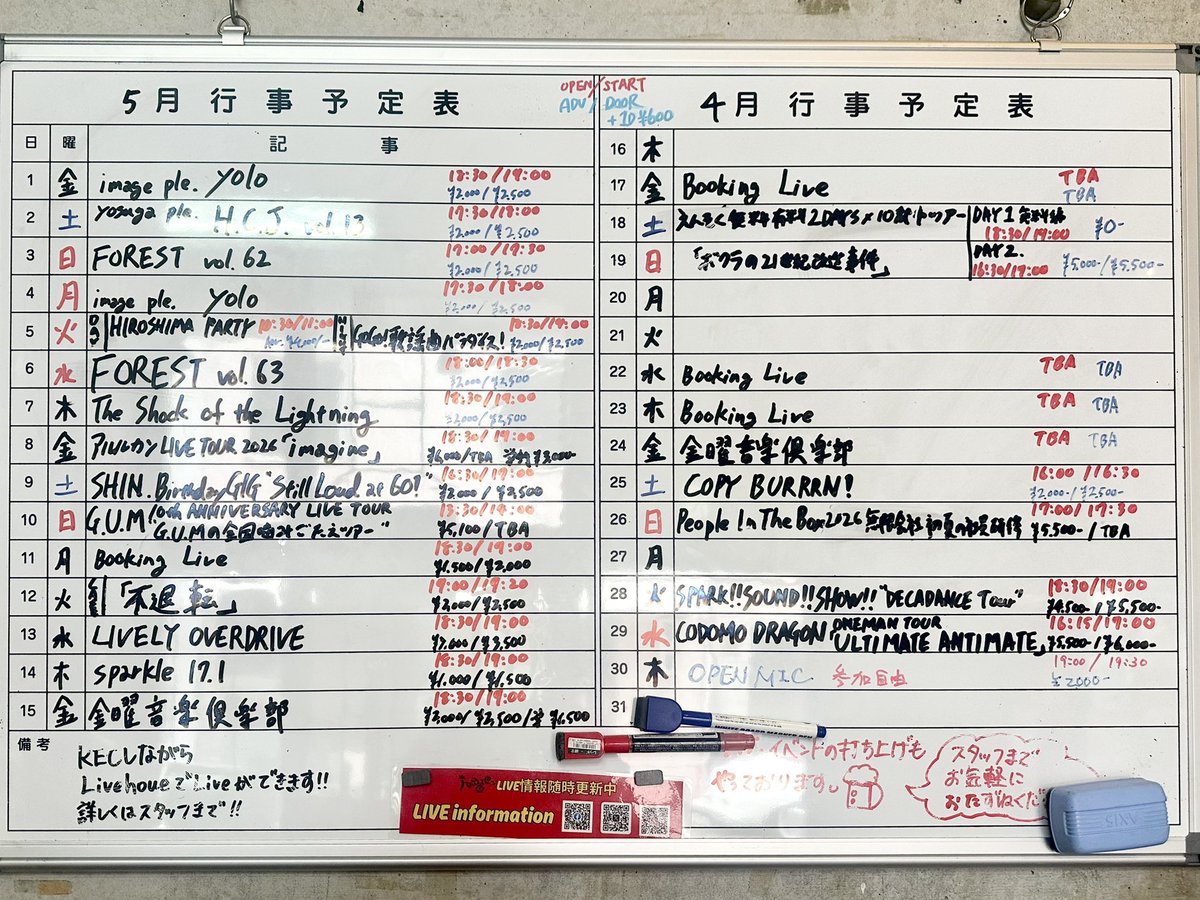 5月行事予定表
OPEN/START
ADV/DOOR
+1D¥600
日 曜 記事
1 金 image ple. yolo 18:30/19:00 ¥2,000/¥2,500
2 土 yosuga ple. H.C.J. vol.13 17:30/18:00 ¥2,000/¥2,500
3 日 FOREST vol.62 17:00/17:30 ¥2,000/¥2,500
4 月 image ple. yolo 17:30/18:00 ¥2,000/¥2,500
5 火 HIROSHIMA PARTY 10:30/11:00 GoGo!歌謡曲パラダイス! 18:30/19:00 ¥2,000/¥2,500
6 水 FOREST vol.63 18:00/18:30 ¥2,000/¥2,500
7 木 The Shock of the Lightning 18:30/19:00 ¥2,000/¥2,500
8 金 アルルカン LIVE TOUR 2026「imagine」 18:30/19:00 ¥6,000/TBA
9 土 SHIN. Birthday GIG "Still Loud at 60!" 16:30/17:00 ¥2,000/¥2,500
10 日 G.U.M 10th ANNIVERSARY LIVE TOUR 13:30/14:00
G.U.Mの全国噛みごたえツアー" ¥5,100/TBA
11 月 Booking Live 18:30/19:00 ¥1,500/¥2,000
12 火 「不退転」 19:00/19:20 ¥2,000/¥2,500
13 水 LIVELY OVERDRIVE 18:30/19:00 ¥3,000/¥3,500
14 木 sparkle 17.1 18:30/19:00 ¥1,000/¥1,500
15 金 金曜音楽倶楽部 18:30/19:00 ¥2,000/¥2,500/学¥1,500
備考
KECしながら
LivehoueでLiveができます!!
詳しくはスタッフまで!!
4月行事予定表
16 木
17 金 Booking Live TBA TBA
18 土 えんそく 無料有料2DAYS×10本ツアー DAY1 無料編 18:30/19:00 ¥0-
19 日 「ボクラの21世紀改造事件」 DAY2. 16:30/17:00 ¥5,000-/¥5,500-
20 月
21 火
22 水 Booking Live TBA TBA
23 木 Booking Live TBA TBA
24 金 金曜音楽倶楽部 TBA TBA
25 土 COPY BURRRN! 16:00/16:30 ¥2,000-/¥2,500-
26 日 People In The Box 2026 無限会社 初夏の社員研修 17:00/17:30 ¥5,500-/TBA
27 月
28 火 SPARK!!SOUND!!SHOW!! "DECADANCE Tour" 18:30/19:00 ¥4,500-/¥5,500-
29 水 CODOMO DRAGON ONEMAN TOUR 「ULTIMATE ANTIMATE」 16:15/17:00 ¥5,500-/¥6,000-
30 木 OPEN MIC 参加自由 19:00/19:30 ¥2000-
31
イベントの打ち上げも
やっております。
スタッフまで
お気軽に
おたずねくだ
LIVE情報随時更新中
LIVE information
AXIS